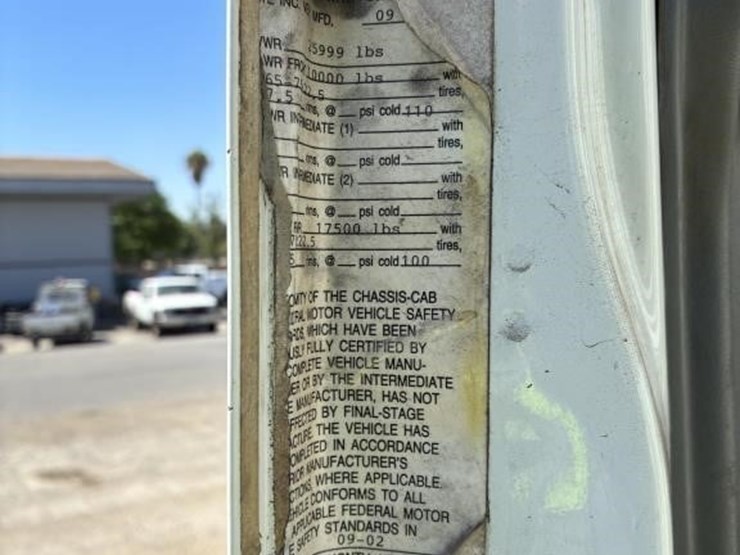 INC.
MFD. 09
WR 5999 lbs
WR FR 10000 lbs with
65 7 22.5 tires,
7.5 ms, @ psi cold 110
WR IN MEDIATE (1) with
tires,
ms, @ psi cold
R IN MEDIATE (2) with
tires,
ms, @ psi cold
RR 17500 lbs with
7 22.5 tires,
5 ms, @ psi cold 100
OMITY OF THE CHASSIS-CAB
RAL MOTOR VEHICLE SAFETY
RDS, WHICH HAVE BEEN
USLY FULLY CERTIFIED BY
COMPLETE VEHICLE MANU-
ER OR BY THE INTERMEDIATE
E MANUFACTURER, HAS NOT
FFECTED BY FINAL-STAGE
ACTURE THE VEHICLE HAS
OMPLETED IN ACCORDANCE
RIOR MANUFACTURER'S
CTIONS, WHERE APPLICABLE.
HICLE CONFORMS TO ALL
APPLICABLE FEDERAL MOTOR
E SAFETY STANDARDS IN
09-02